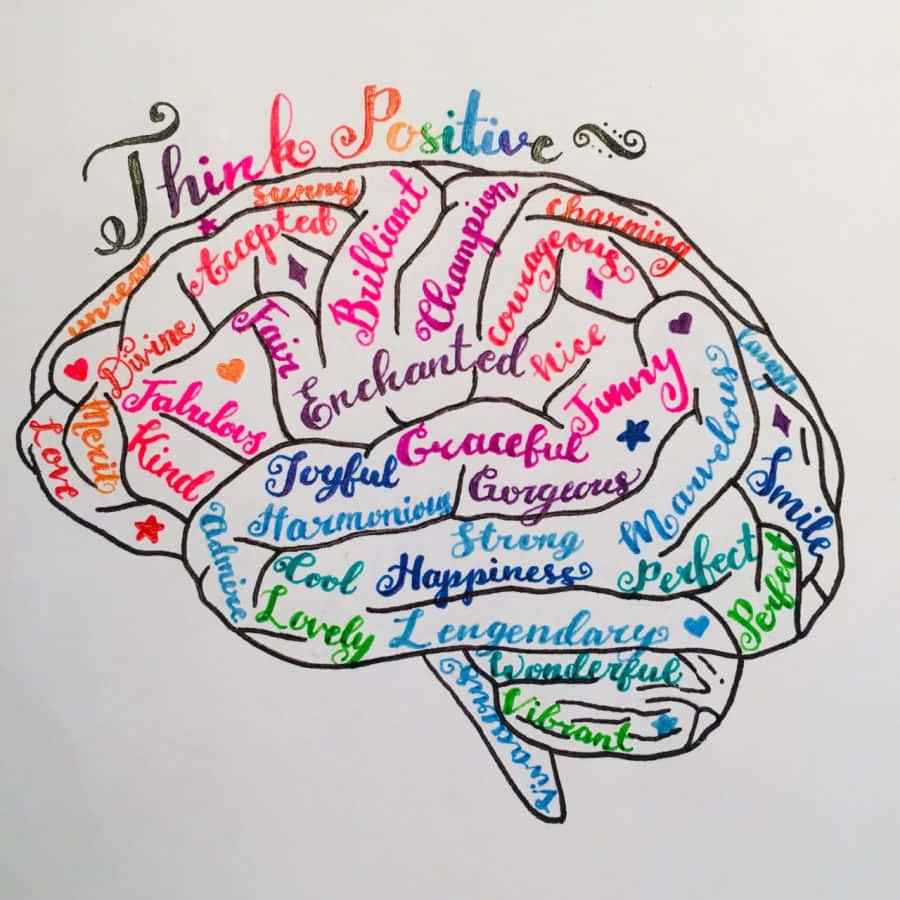 Think Positive
sunny
Accepted
Brilliant
Champion
courageous
charming
unreal
Divine
Fair
Enchanted
nice
Funny
laugh
Love
Merit
Fabulous
Kind
Joyful
Graceful
Gorgeous
Marvelous
Smile
Admire
Harmonious
Strong
Cool
Happiness
Perfect
Perfect
Lovely
Lengendary
Wonderful
Vibrant
Vivacious